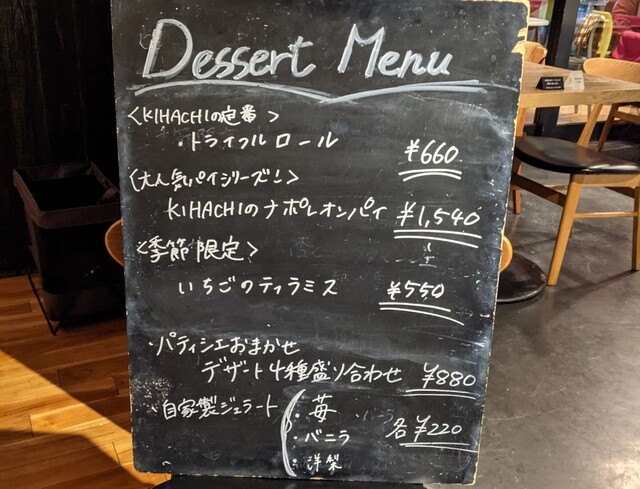 Dessert Menu
<KIHACHIの定番>
・トライフルロール ¥660
<大人気パイシリーズ!>
KIHACHIのナポレオンパイ ¥1,540
<季節限定>
いちごのティラミス ¥550
・パティシエおまかせ
デザート4種盛り合わせ ¥880
・自家製ジェラート ・苺
・バニラ 各¥220
・洋梨